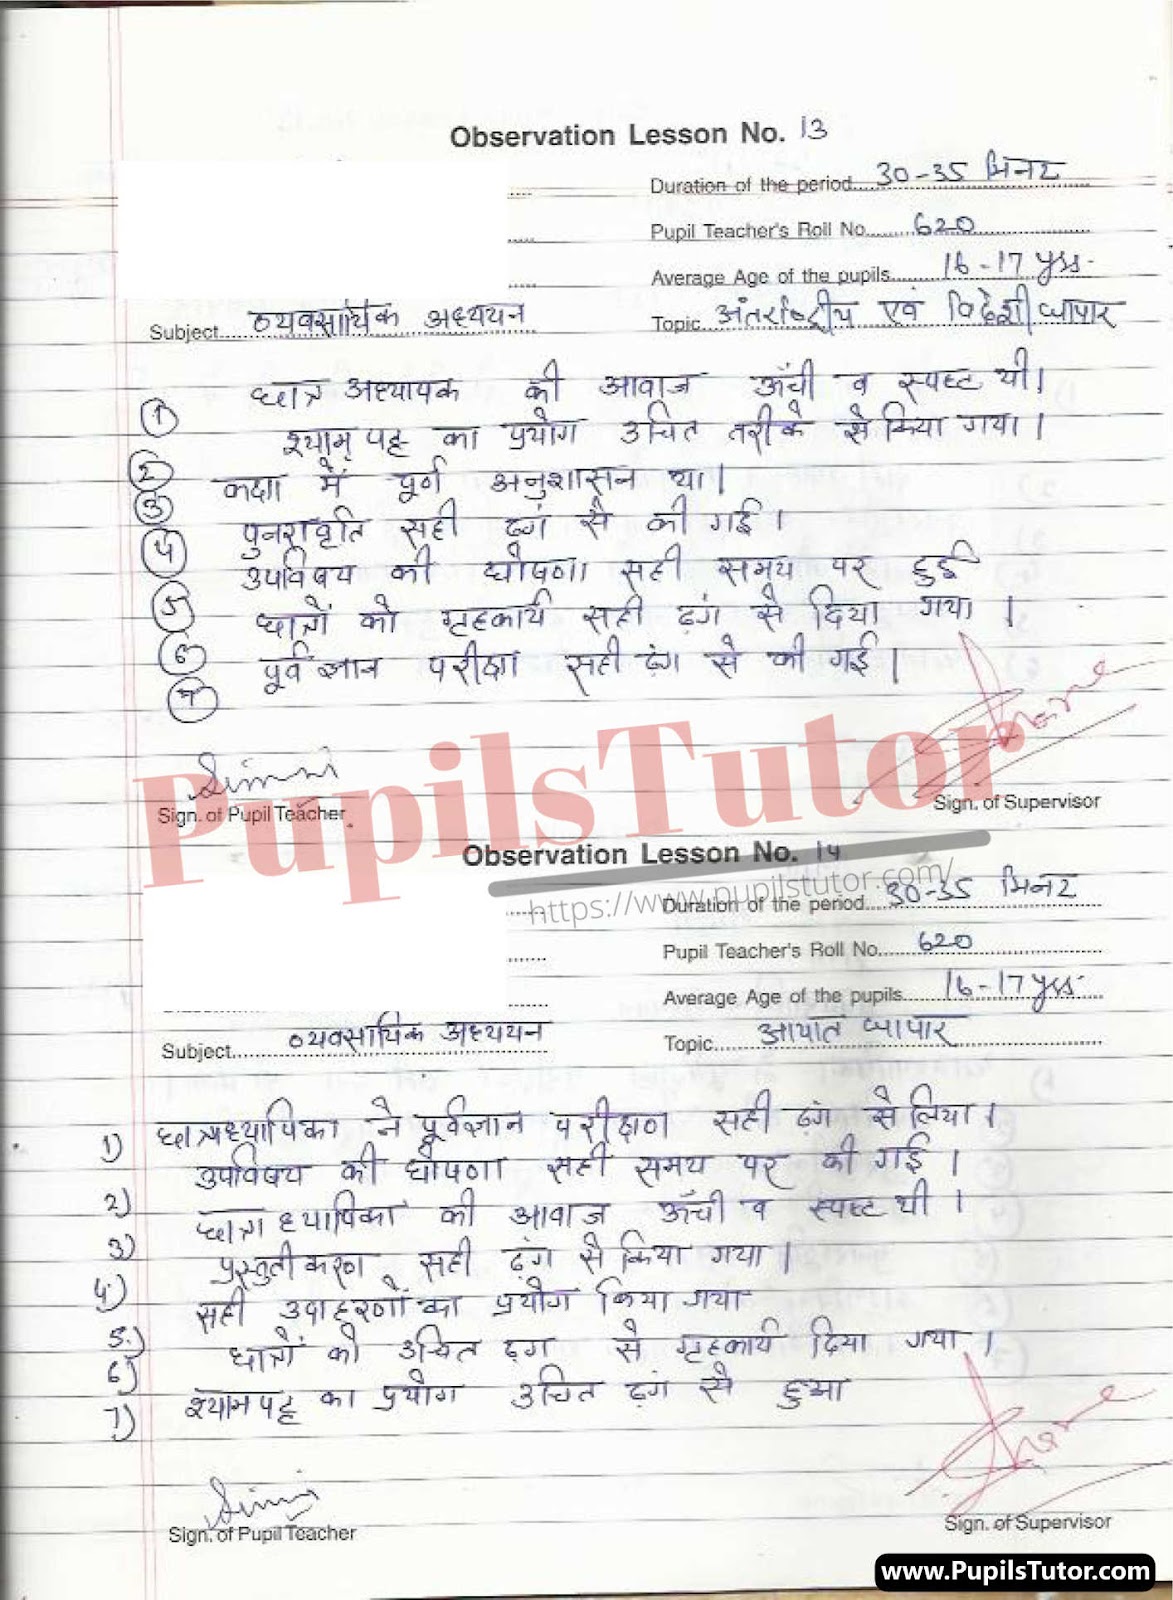 Observation Lesson No. 13
Duration of the period 30-35 मिनट
Pupil Teacher's Roll No. 620
Average Age of the pupils 16-17 yrs.
Subject व्यवसायिक अध्ययन
Topic अंतर्राष्ट्रीय एवं विदेशी व्यापार
1 छात्र अध्यापक की आवाज ऊँची व स्पष्ट थी।
2 श्यामपट्ट का प्रयोग उचित तरीके से किया गया।
3 कक्षा में पूर्ण अनुशासन था।
4 पुनरावृति सही ढंग से की गई।
5 उपविषय की घोषणा सही समय पर हुई
6 छात्रों को गृहकार्य सही ढंग से दिया गया।
7 पूर्व ज्ञान परीक्षा सही ढंग से की गई।
Simmi
Sign. of Pupil Teacher
Sign. of Supervisor
PupilsTutor
https://www.pupilstutor.com/
Observation Lesson No. 14
Duration of the period 30-35 मिनट
Pupil Teacher's Roll No. 620
Average Age of the pupils 16-17 yrs.
Subject व्यवसायिक अध्ययन
Topic आयात व्यापार
1) छात्राध्यापिका ने पूर्वज्ञान परीक्षण सही ढंग से लिया।
2) उपविषय की घोषणा सही समय पर की गई।
3) छात्राध्यापिका की आवाज ऊँची व स्पष्ट थी।
4) प्रस्तुतीकरण सही ढंग से किया गया।
5) सही उदाहरणों का प्रयोग किया गया
6) छात्रों को उचित ढग से गृहकार्य दिया गया।
7) श्यामपट्ट का प्रयोग उचित ढंग से हुआ
Simmi
Sign. of Pupil Teacher
Sign. of Supervisor
www.PupilsTutor.com